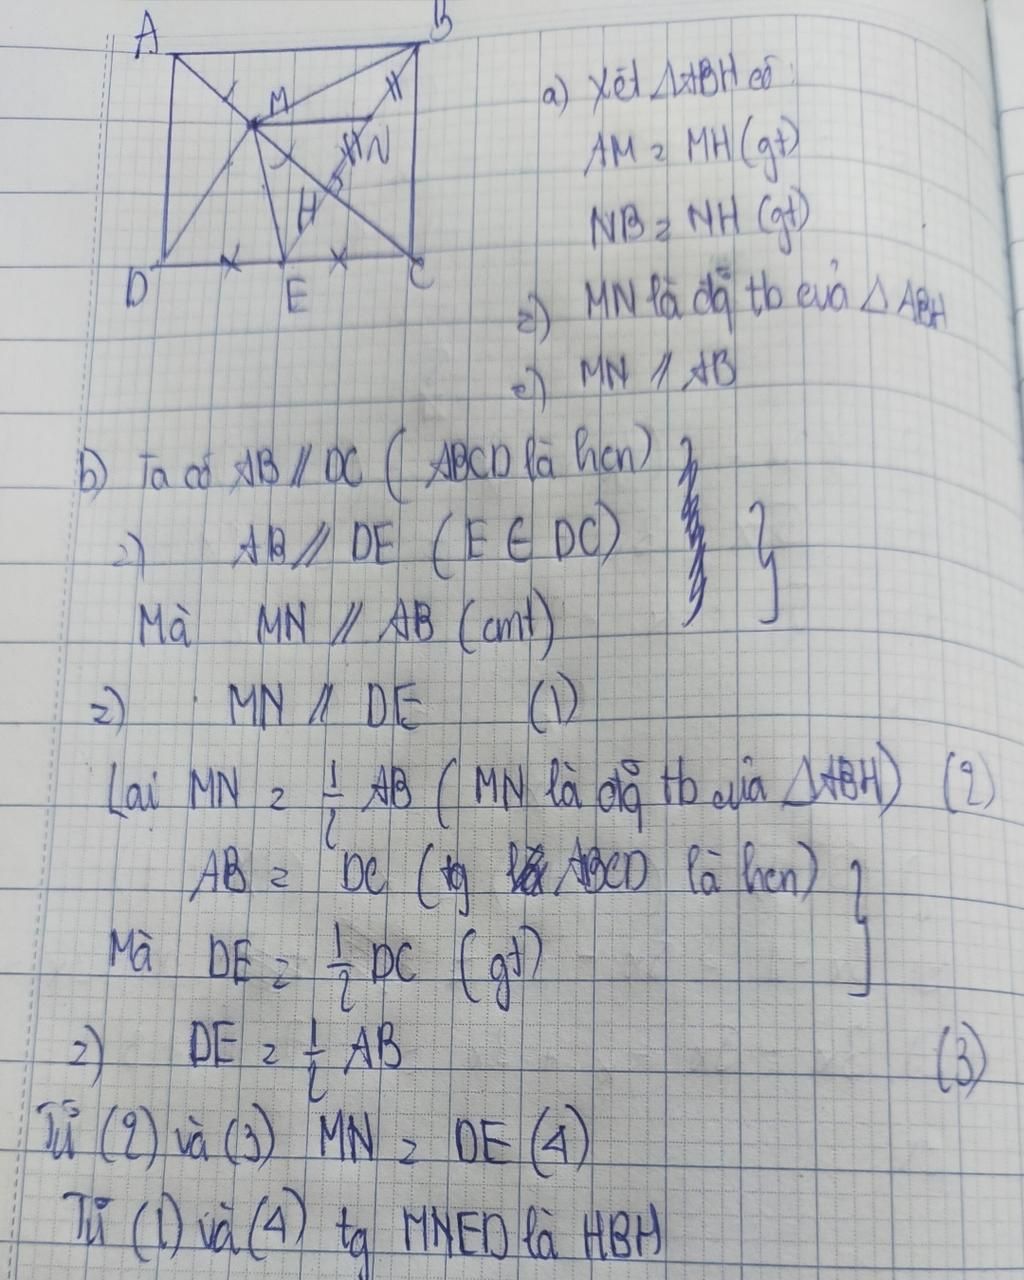 A
B
M
N
H
D
E
C
a) Xét △ABH có:
AM = MH (gt)
NB = NH (gt)
=) MN là đg̃ tb của △ ABH
=) MN // AB
b) Ta có AB // DC ( ABCD là hcn)
=) AB // DE ( E ∈ DC)
Mà MN // AB (cmt)
=) MN // DE (1)
Lại MN = 1/2 AB ( MN là đg̃ tb của △ABH) (2)
AB = DC (tg ABCD là hcn)
Mà DE = 1/2 DC (gt)
=) DE = 1/2 AB (3)
Từ (2) và (3) MN = DE (4)
Từ (1) và (4) tg MNED là HBH